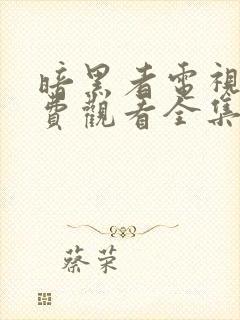 暗黑者電視
費觀看全集
蔡荣